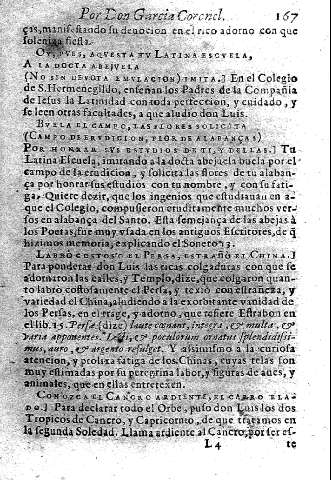 Por Don Garcia Coronel. 167
ças, manifestando su deuocion en el rico adorno con que
soleniza fiesta.
OY, PVES, AQVESTA TV LATINA ESCVELA,
A LA DOCTA ABEJVELA
(NO SIN DEVOTA EMVLACION) IMITA.] En el Colegio
de S. Hermenegildo, enseñan los Padres de la Compañia
de Iesus la Latinidad con toda perfeccion, y cuidado, y
se leen otras facultades, a que aludio don Luis.
BVELA EL CAMPO, LAS FLORES SOLICITA
(CAMPO DE ERVDICION, FLOR DE ALABANÇAS)
POR HONRAR SVS ESTVDIOS DE TI, Y DELLAS.] Tu
Latina Escuela, imitando a la docta abejuela buela por el
campo de la erudicion, y solicita las flores de tu alaban-
ça por honrar sus estudios con tu nombre, y con su fati-
ga. Quiere dezir, que los ingenios que estudiauan en a-
que el Colegio, compusieron eruditamente muchos ver-
sos en alabança del Santo. Esta semejança de las abejas à
los Poetas, fue muy vsada en los antiguos Escritores, de q̃
hizimos memoria, explicando el Soneto 13.
LABRO COSTOSO EL PERSA, ESTRAÑO EL CHINA.]
Para ponderar don Luis las ricas colgaduras con que se
adornaron las calles, y Templo, dize, que colgaron quan-
to labrò costosamente el Persa, y texiò con estrañeza, y
variedad el China, aludiendo a la exorbitante vanidad de
los Persas, en el trage, y adorno, que refiere Estrabon en
el lib. 15. Persæ (dize) laute cœnant, integra, & multa, &
varia apponentes. poculorum ornatus splendidissi-
mus, auro, & argento refulget. Y assimismo a la curiosa
atencion, y prolixa fatiga de los Chinas, cuyas telas son
muy estimadas por su peregrina labor, y figuras de aues, y
animales, que en ellas entretexen.
CONOZCA EL CANCRO ARDIENTE, EL CARRO ELA-
DO.] Para declarar todo el Orbe, puso don Luis los dos
Tropicos de Cancro, y Capricorno, de que tratamos en
la segunda Soledad. Llama ardiente al Cancro, por ser es-
L 4 te